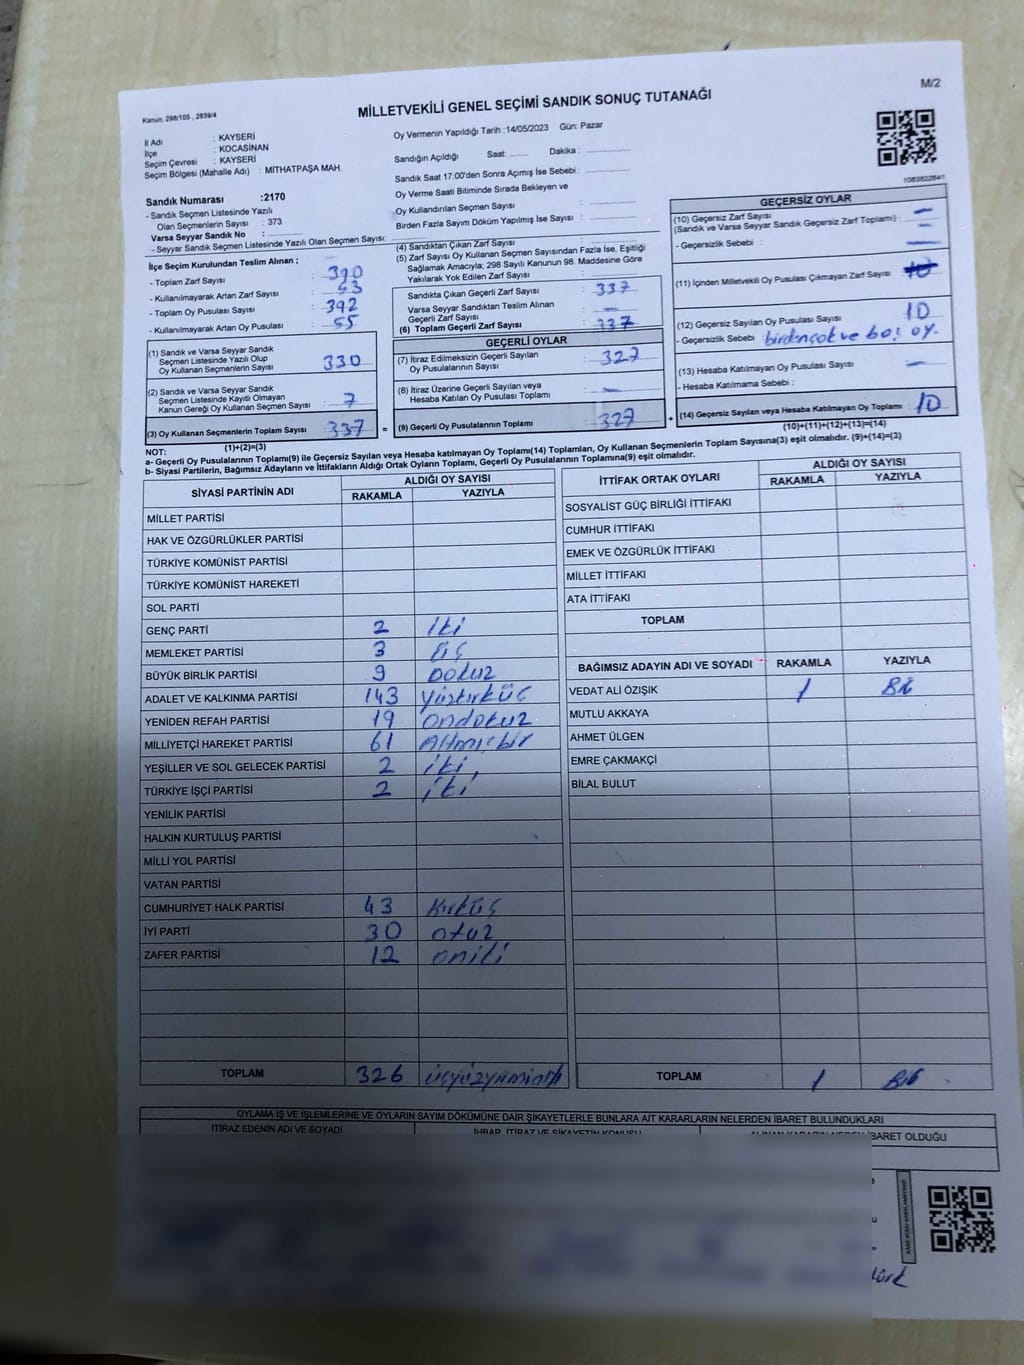 M/2
Kanun: 298/105 , 2839/4
MİLLETVEKİLİ GENEL SEÇİMİ SANDIK SONUÇ TUTANAĞI
İl Adı : KAYSERİ
İlçe : KOCASİNAN
Seçim Çevresi : KAYSERİ
Seçim Bölgesi (Mahalle Adı) : MİTHATPAŞA MAH.
Sandık Numarası :2170
- Sandık Seçmen Listesinde Yazılı
Olan Seçmenlerin Sayısı : 373
Varsa Seyyar Sandık No :
- Seyyar Sandık Seçmen Listesinde Yazılı Olan Seçmen Sayısı:
İlçe Seçim Kurulundan Teslim Alınan :
- Toplam Zarf Sayısı : 390
- Kullanılmayarak Artan Zarf Sayısı : 53
- Toplam Oy Pusulası Sayısı : 392
- Kullanılmayarak Artan Oy Pusulası : 55
(1) Sandık ve Varsa Seyyar Sandık
Seçmen Listesinde Yazılı Olup
Oy Kullanan Seçmenlerin Sayısı : 330
(2) Sandık ve Varsa Seyyar Sandık
Seçmen Listesinde Kayıtlı Olmayan
Kanun Gereği Oy Kullanan Seçmen Sayısı : 7
(3) Oy Kullanan Seçmenlerin Toplam Sayısı : 337
(1)+(2)=(3)
Oy Vermenin Yapıldığı Tarih :14/05/2023 Gün: Pazar
Sandığın Açıldığı Saat: Dakika :
Sandık Saat 17:00'den Sonra Açımış İse Sebebi :
Oy Verme Saati Bitiminde Sırada Bekleyen ve
Oy Kullandırılan Seçmen Sayısı :
Birden Fazla Sayım Döküm Yapılmış İse Sayısı :
(4) Sandıktan Çıkan Zarf Sayısı :
(5) Zarf Sayısı Oy Kullanan Seçmen Sayısından Fazla İse, Eşitliği
Sağlamak Amacıyla; 298 Sayılı Kanunun 98. Maddesine Göre
Yakılarak Yok Edilen Zarf Sayısı :
Sandıkta Çıkan Geçerli Zarf Sayısı : 337
Varsa Seyyar Sandıktan Teslim Alınan
Geçerli Zarf Sayısı : —
(6) Toplam Geçerli Zarf Sayısı : 337
GEÇERLİ OYLAR
(7) İtiraz Edilmeksizin Geçerli Sayılan
Oy Pusulalarının Sayısı : 327
(8) İtiraz Üzerine Geçerli Sayılan veya
Hesaba Katılan Oy Pusulası Toplamı : —
= (9) Geçerli Oy Pusulalarının Toplamı : 327 +
1083822641
GEÇERSİZ OYLAR
(10) Geçersiz Zarf Sayısı : —
(Sandık ve Varsa Seyyar Sandık Geçersiz Zarf Toplamı) : —
- Geçersizlik Sebebi : —
(11) İçinden Milletvekili Oy Pusulası Çıkmayan Zarf Sayısı
(12) Geçersiz Sayılan Oy Pusulası Sayısı : 10
- Geçersizlik Sebebi : birden çok ve boş oy.
(13) Hesaba Katılmayan Oy Pusulası Sayısı : —
- Hesaba Katılmama Sebebi :
(14) Geçersiz Sayılan veya Hesaba Katılmayan Oy Toplamı : 10
(10)+(11)+(12)+(13)=(14)
NOT:
a- Geçerli Oy Pusulalarının Toplamı(9) ile Geçersiz Sayılan veya Hesaba katılmayan Oy Toplamı(14) Toplamları, Oy Kullanan Seçmenlerin Toplam Sayısına(3) eşit olmalıdır. (9)+(14)=(3)
b- Siyasi Partilerin, Bağımsız Adayların ve İttifakların Aldığı Ortak Oyların Toplamı, Geçerli Oy Pusulalarının Toplamına(9) eşit olmalıdır.
SİYASİ PARTİNİN ADI ALDIĞI OY SAYISI
RAKAMLA YAZIYLA
MİLLET PARTİSİ
HAK VE ÖZGÜRLÜKLER PARTİSİ
TÜRKİYE KOMÜNİST PARTİSİ
TÜRKİYE KOMÜNİST HAREKETİ
SOL PARTİ
GENÇ PARTİ 2 iki
MEMLEKET PARTİSİ 3 üç
BÜYÜK BİRLİK PARTİSİ 9 Dokuz
ADALET VE KALKINMA PARTİSİ 143 Yüzkırküç
YENİDEN REFAH PARTİSİ 19 ondokuz
MİLLİYETÇİ HAREKET PARTİSİ 61 Altmışbir
YEŞİLLER VE SOL GELECEK PARTİSİ 2 iki
TÜRKİYE İŞÇİ PARTİSİ 2 iki
YENİLİK PARTİSİ
HALKIN KURTULUŞ PARTİSİ
MİLLİ YOL PARTİSİ
VATAN PARTİSİ
CUMHURİYET HALK PARTİSİ 43 kırküç
İYİ PARTİ 30 otuz
ZAFER PARTİSİ 12 oniki
TOPLAM 326 üçyüzyirmialtı
İTTİFAK ORTAK OYLARI ALDIĞI OY SAYISI
RAKAMLA YAZIYLA
SOSYALİST GÜÇ BİRLİĞİ İTTİFAKI
CUMHUR İTTİFAKI
EMEK VE ÖZGÜRLÜK İTTİFAKI
MİLLET İTTİFAKI
ATA İTTİFAKI
TOPLAM
BAĞIMSIZ ADAYIN ADI VE SOYADI RAKAMLA YAZIYLA
VEDAT ALİ ÖZIŞIK 1 Bir
MUTLU AKKAYA
AHMET ÜLGEN
EMRE ÇAKMAKÇİ
BİLAL BULUT
TOPLAM 1 Bir
OYLAMA İŞ VE İŞLEMLERİNE VE OYLARIN SAYIM DÖKÜMÜNE DAİR ŞİKAYETLERLE BUNLARA AİT KARARLARIN NELERDEN İBARET BULUNDUKLARI
İTİRAZ EDENİN ADI VE SOYADI
İHBAR, İTİRAZ VE ŞİKAYETİN KONUSU
ALINAN KARARIN NEDEN İBARET OLDUĞU